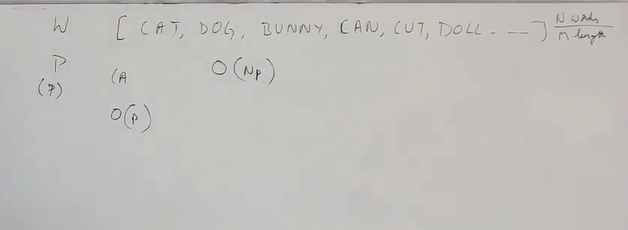 W [ CAT, DOG, BUNNY, CAN, CUT, DOLL - --- ] N words
m length
P CA O(NP)
(P)
O(P)